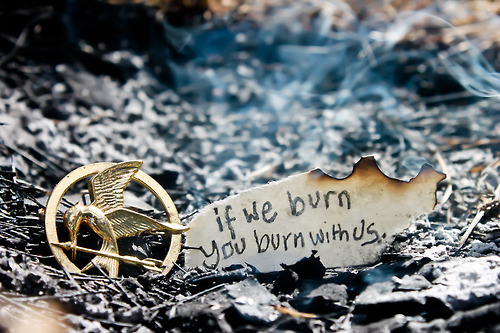 if we burn
you burn with us.